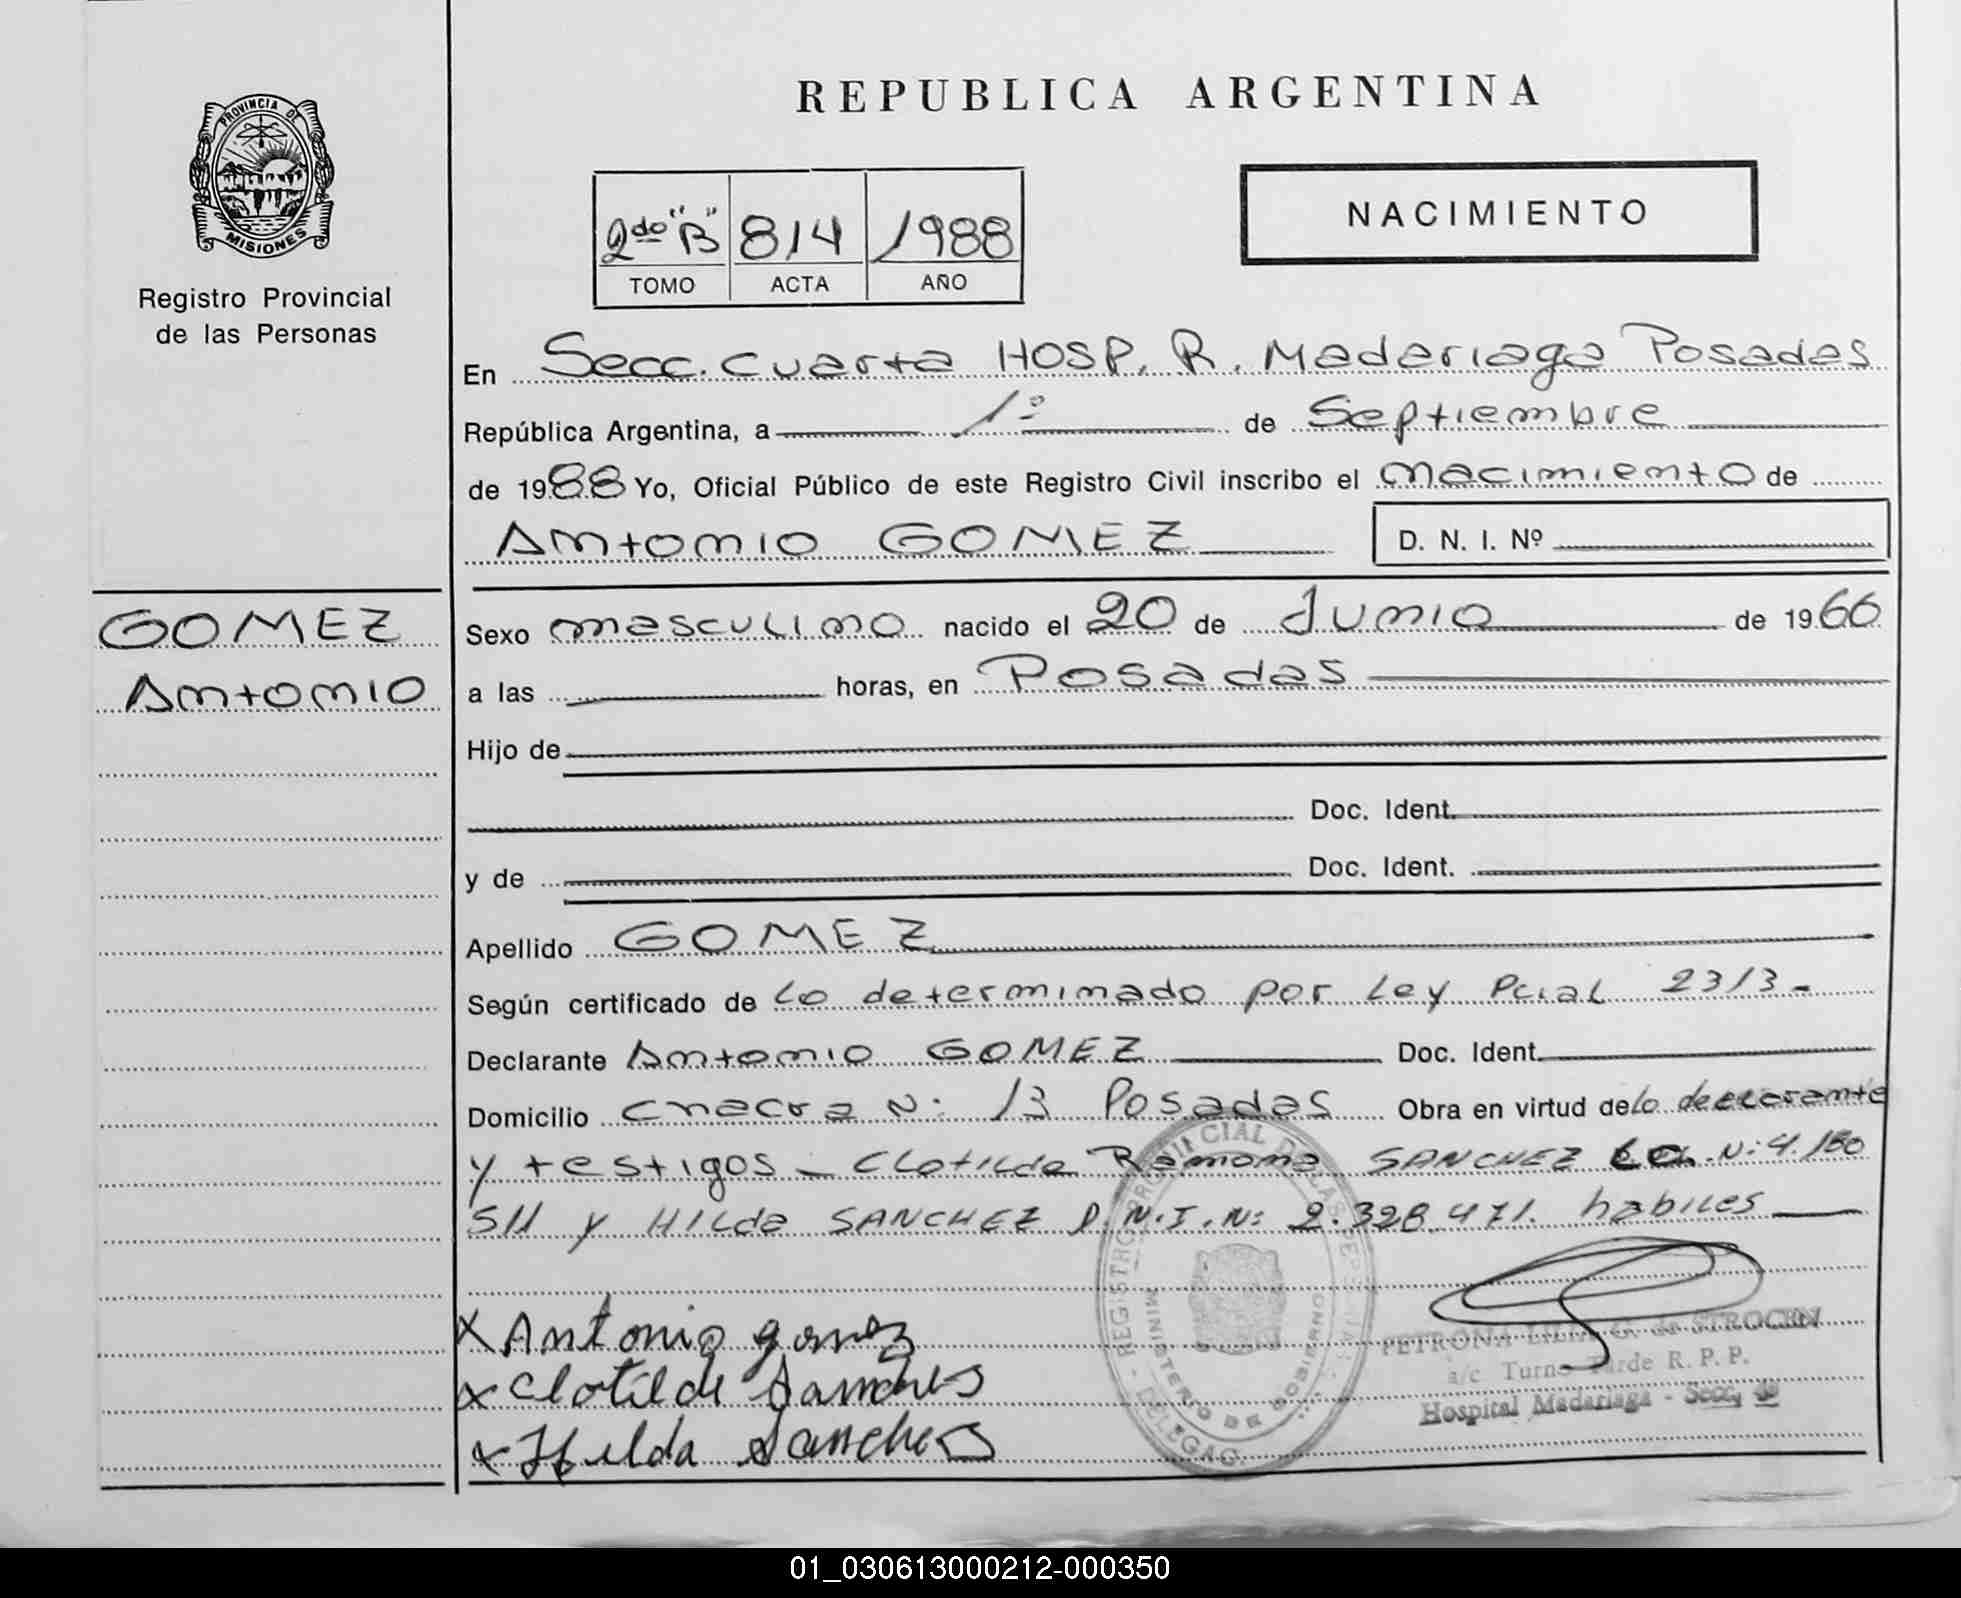 PROVINCIA DE
MISIONES
Registro Provincial
de las Personas
REPUBLICA ARGENTINA
2do "B" 814 1988
TOMO ACTA AÑO
NACIMIENTO
En Secc. Cuarta HOSP. R. Madariaga Posadas
República Argentina, a 1º de Septiembre
de 1988 Yo, Oficial Público de este Registro Civil inscribo el nacimiento de
Antonio GOMEZ D. N. I. Nº
GOMEZ
Antonio
Sexo masculino nacido el 20 de Junio de 1966
a las horas, en Posadas
Hijo de
Doc. Ident.
y de Doc. Ident.
Apellido GOMEZ
Según certificado de lo determinado por Ley Pcial 2313-
Declarante Antonio GOMEZ Doc. Ident.
Domicilio chacra N: 13 Posadas Obra en virtud de lo declarante
y testigos - Clotilde Ramona SANCHEZ L.C. N: 4.150
511 y Hilda SANCHEZ D.N.I. N: 2.328.471. habiles
x Antonio gomez
x Clotilde Sanches
x Hilda Sanches
REGISTRO PROVINCIAL DE LAS PERSONAS
MINISTERIO DE GOBIERNO
DELEGAC.
PETRONA LILIA G. de STROCEN
a/c Turno Tarde R. P. P.
Hospital Madariaga - Secc. 4a
01_030613000212-000350